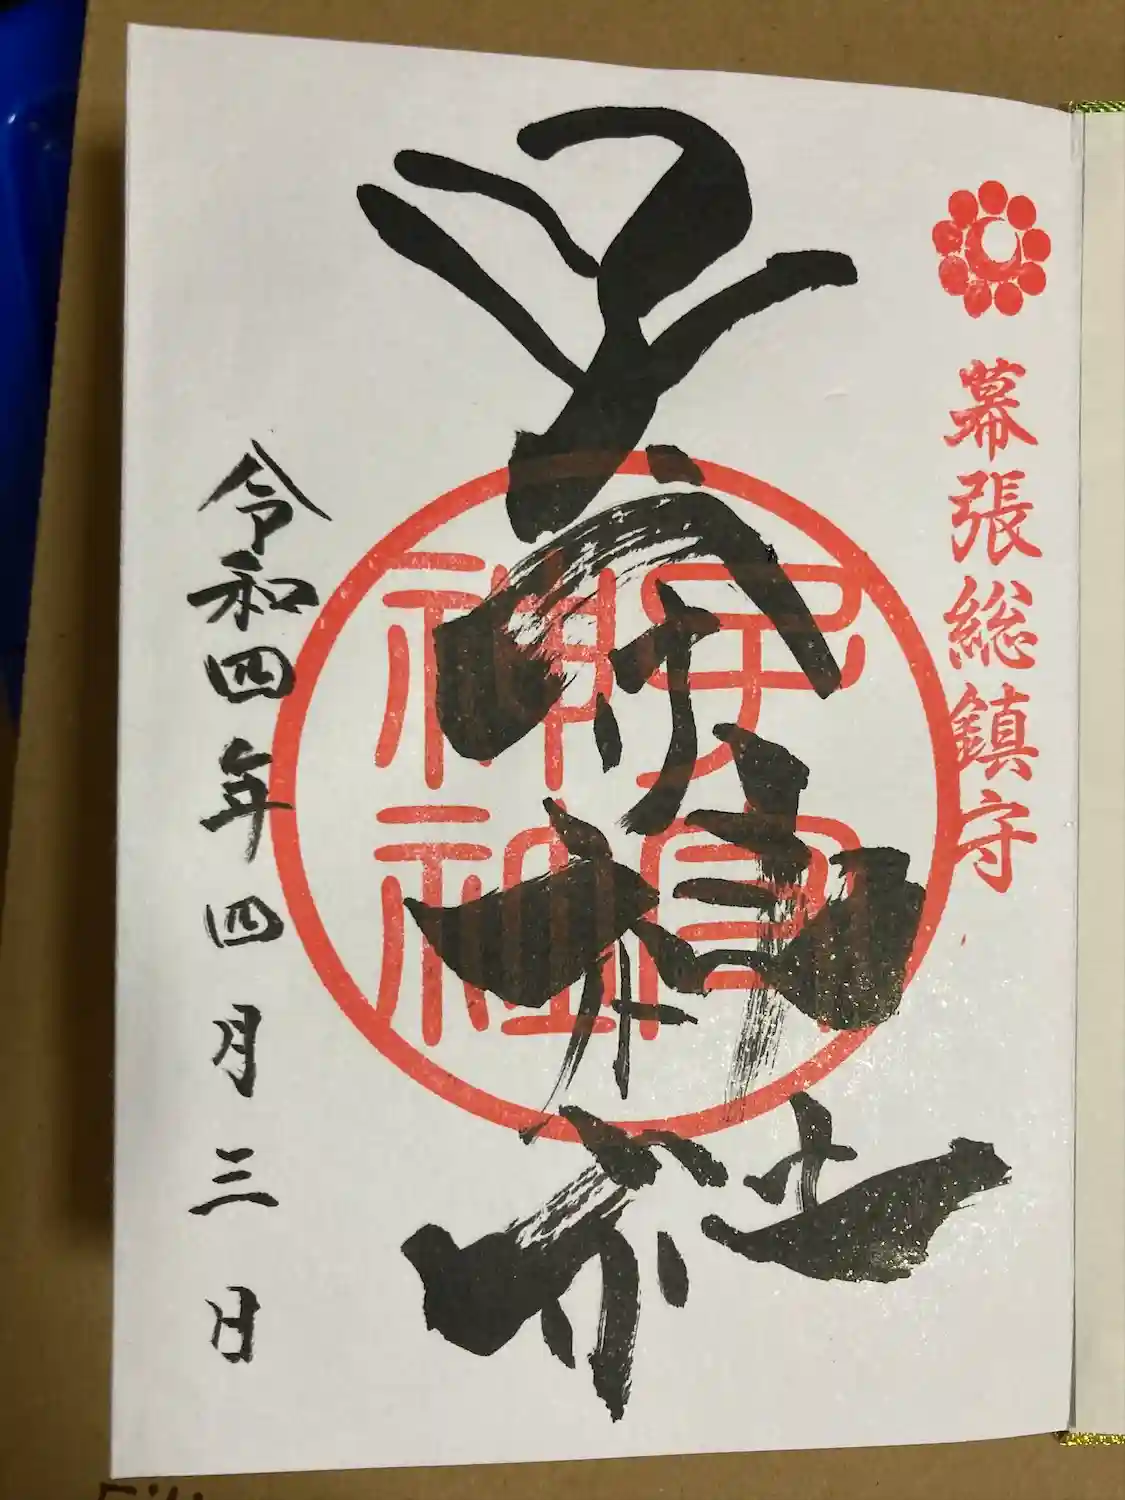 幕張総鎮守
子守神社
子守
神社
令和四年四月三日